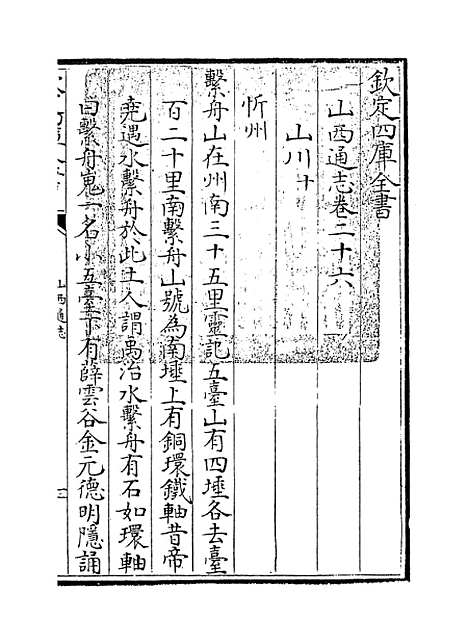 欽定四庫全書
山西通志卷二十六
山川十
忻州
繫舟山在州南三十五里靈記五臺山有四埵各去臺
百二十里南繫舟山號為南埵上有銅環鐵軸昔帝
堯遇水繫舟於此土人謂禹治水繫舟有石如環軸
曰繫舟嵬一名小五臺下有薛雲谷金元德明隱誦
山西通志